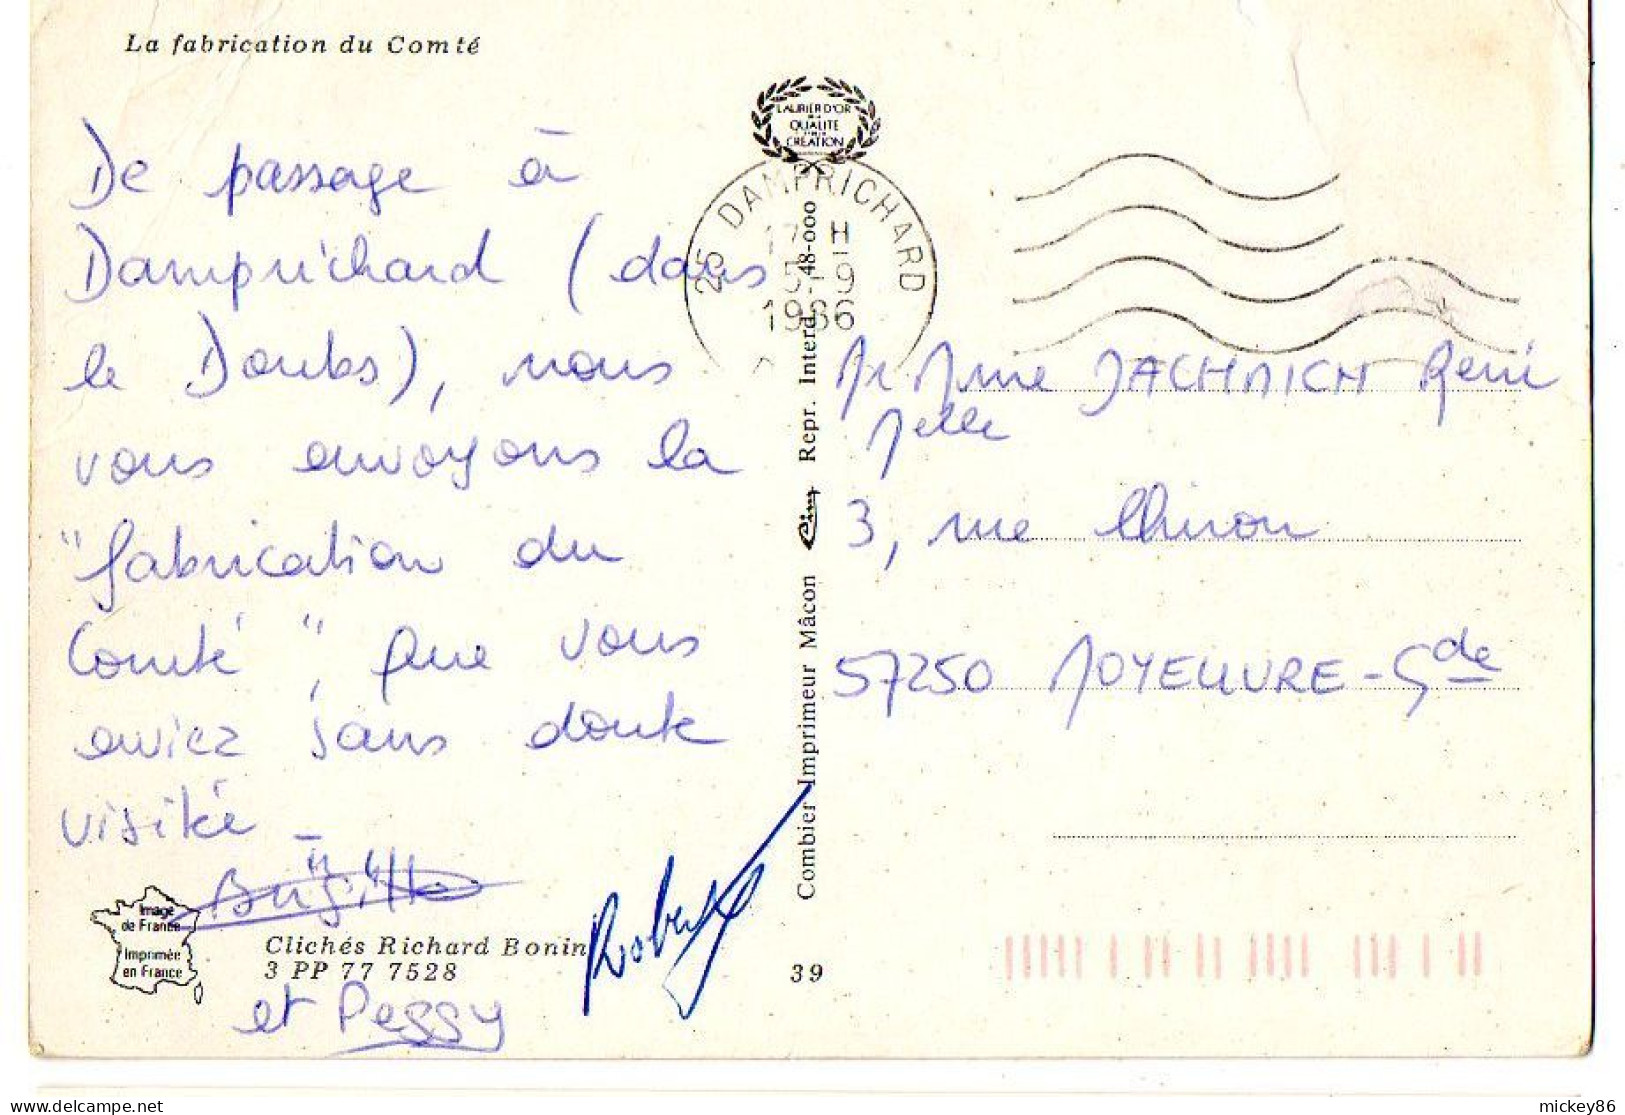 La fabrication du Comté
LAURIER D'OR
QUALITE
CREATION
De passage à
Damprichard (dans
le Doubs), nous
vous envoyons la
"fabrication du
Comté", que vous
aviez sans doute
visitée -
Brigitte
Robert
et Peggy
Image
de France
Imprimée
en France
Clichés Richard Bonin
3 PP 77 7528
39
Combier Imprimeur Mâcon Cim Repr. Interd. 48-000
25 DAMPRICHARD
17 H
5-9
1986
Mr Mme JACHMICH René
Melle
3, rue Chiron
57250 MOYEUVRE-Gde
mickey86